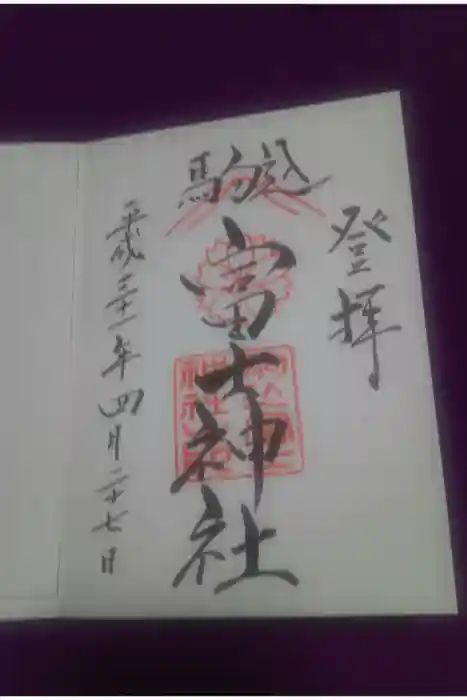 登拝
駒込
富士神社
平成三十一年四月二十七日